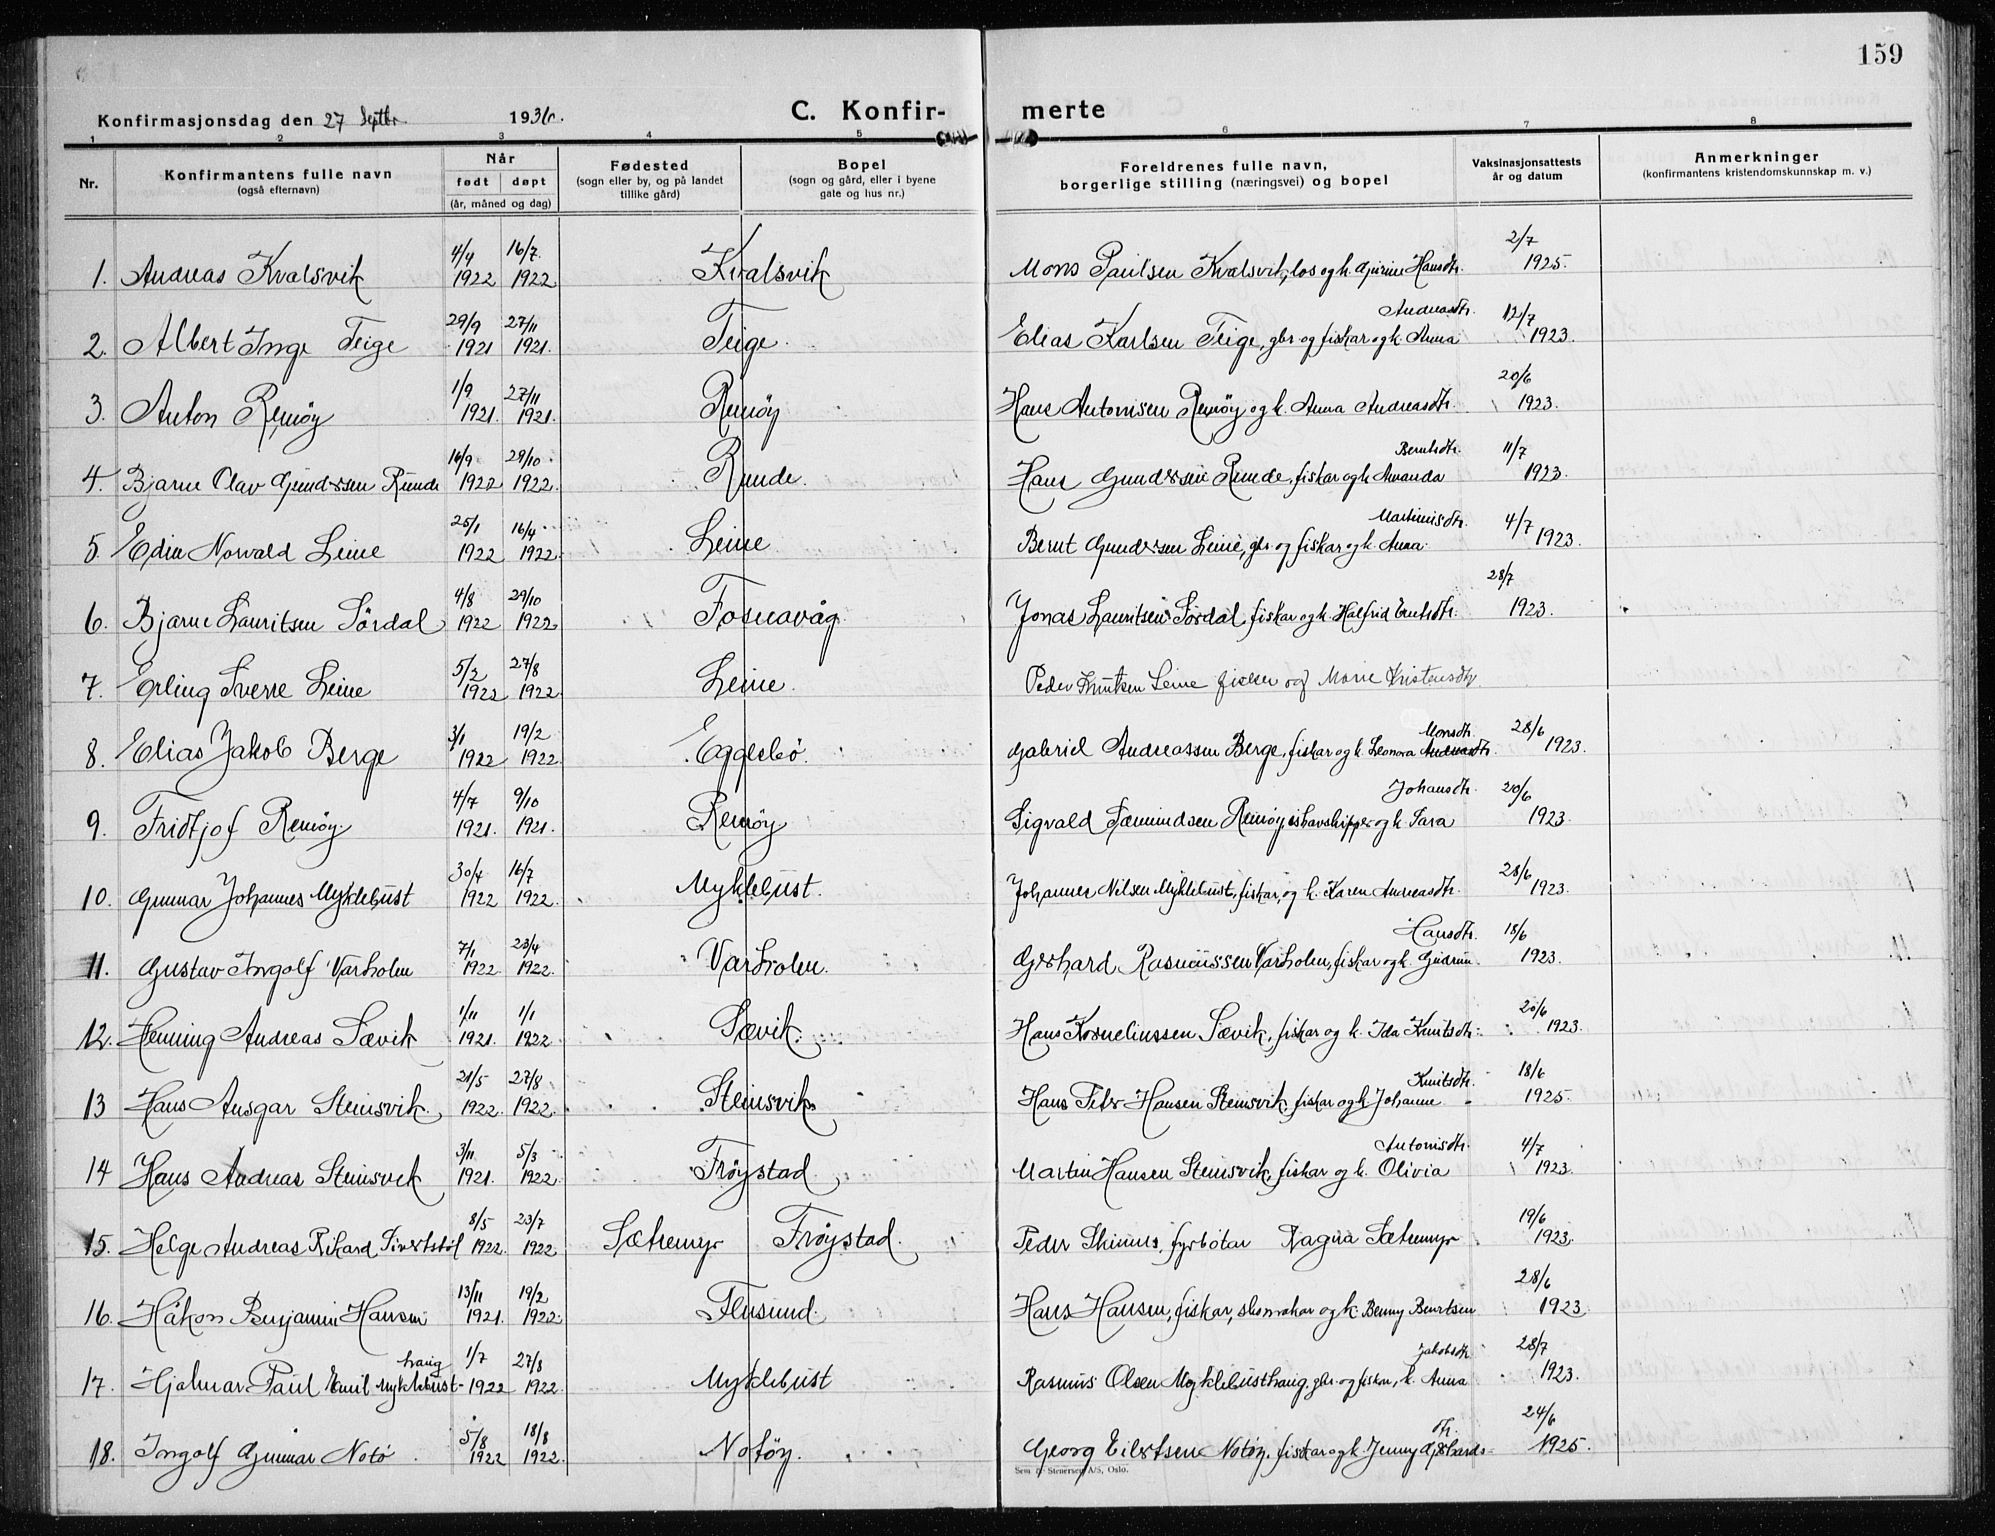 159
Konfirmasjonsdag den 27 Septbr. 1936. C. Konfir- merte
1 2 3 4 5 6 7 8
Nr. Konfirmantens fulle navn (også efternavn) Når født døpt (år, måned og dag) Fødested (sogn eller by, og på landet tillike gård) Bopel (sogn og gård, eller i byene gate og hus nr.) Foreldrenes fulle navn, borgerlige stilling (næringsvei) og bopel Vaksinasjonsattests år og datum Anmerkninger (konfirmantens kristendomskunnskap m. v.)
1. Andreas Kvalsvik 4/4 1922 16/7 1922 Kvalsvik Mons Paulsen Kvalsvik, los og k. Gurine Hansdtr. 2/7 1925.
2. Albert Inge Teige 29/9 1921 27/11 1921. Teige. Elias Karlsen Teige, gbr. og fiskar og k. Anna Andreasdtr. 12/7 1923.
3. Anton Remøy 1/9 1921. 27/11 1921. Remøy Hans Antonisen Remøy og k. Anna Andreasdtr. 20/6 1923.
4. Bjarne Olav Gundersen Runde 16/9 1922 29/10 1922. Runde. Hans Gundersen Runde, fiskar og k. Amanda Berntsdtr. 11/7 1923.
5. Edin Norvald Leine 25/1 1922 16/4 1922. Leine Bernt Gundersen Leine, gbr. og fiskar og k. Anna Martinusdtr. 4/7 1923.
6. Bjarne Lauritsen Sördal 4/8 1922 29/10 1922 Fosnavåg Jonas Lauritsen Sördal, fiskar og k. Halfrid Erntsdtr. 28/7 1923.
7. Erling Sverre Leine 5/2 1922 27/8 1922 Leine. Peder Knutsen Leine fisker og Marie Kristensdtr
8. Elias Jakob Berge 3/1 1922 19/2 1922. Eggesbö. Gabriel Andreassen Berge, fiskar og k. Leonora Andreasdtr. Monsdtr. 28/6 1923.
9. Fridtjof Remøy. 4/7 1921. 9/10 1921. Remøy Sigvald Sæmundsen Remøy, ishavskipper og k. Sara Johansdtr. 20/6 1923.
10. Gunnar Johannes Myklebust 30/4 1922 16/7 1922. Myklebust. Johannes Nilsen Myklebust, fiskar, og k. Karen Andreasdtr. 28/6 1923.
11. Gustav Ingolf Varholm 7/1 1922. 23/4 1922. Varholm. Gerhard Rasmussen Varholm, fiskar og k. Gudrun Hansdtr. 18/6 1923.
12. Henning Andreas Sævik 1/11 1921. 1/1 1922 Sævik. Hans Korneliussen Sævik, fiskar og k. Ida Knutsdtr. 20/6 1923.
13 Hans Ansgar Steinsvik. 21/5 1922. 27/8 1922. Steinsvik. Hans Peter Hansen Steinsvik, fiskar og k. Johanne Knutsdtr. 18/6 1925.
14 Hans Andreas Steinsvik 3/11 1921. 5/3 1922. Frøystad. Martin Hansen Steinsvik, fiskar og k. Olivia Antonisdtr. 4/7 1923.
15. Helge Andreas Rikard Sivertstöl 8/5 1922. 23/7 1922 Sætremyr Frøystad. Peder Skinnes, fyrbötar Ragna Sætremyr 19/6 1923.
16. Håkon Benjamin Hansen 13/11 1921. 19/2 1922. Flusund. Hans Hansen, fiskar, skomakar og k. Benny Berntsen 28/6 1923.
17. Hjalmar Paul Emil Myklebust-haug 1/7 1922 27/8 1922. Myklebust Rasmus Olsen Myklebusthaug, gbr. og fiskar, k. Anna Jakobsdtr. 28/7 1923.
18. Ingolf Gunnar Notö 5/8 1922 18/8 1922. Notøy. Georg Eilertsen Notøy, fiskar og k. Jenny Gerhards-dtr. 24/6 1925.
Sem & Stenersen A/S, Oslo.